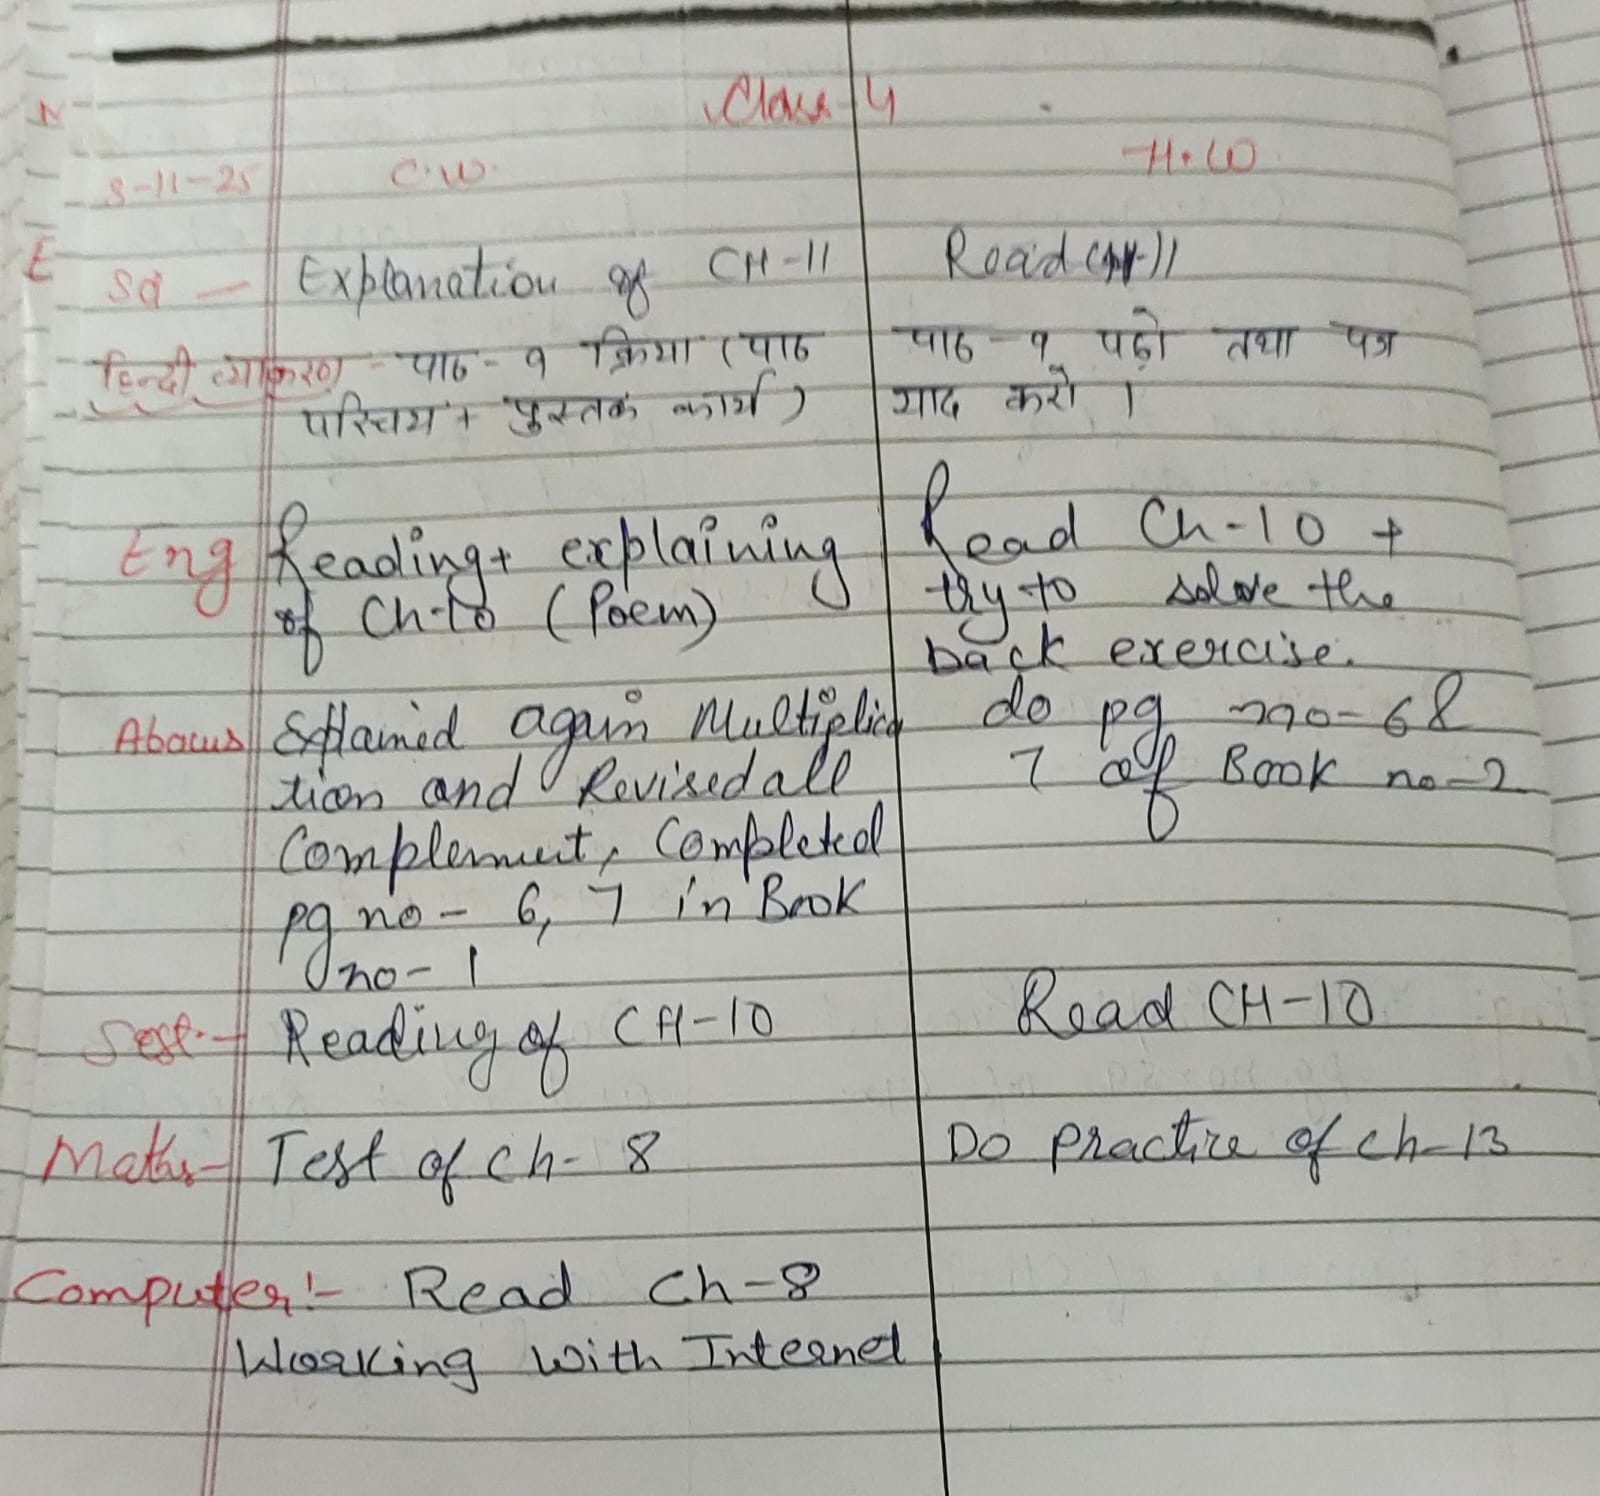 Class-4
3-11-25 C.W. H.W
Sci — Explanation of CH-11 Read CH-11
हिन्दी व्याकरण - पाठ - ९ क्रिया (पाठ पाठ - ९ पढ़ो तथा पत्र
परिचय + पुस्तक कार्य) याद करो ।
Eng Reading+ explaining Read Ch-10 +
of Ch-10 (Poem) try to solve the
back exercise.
Abacus Explained again Multiplica do pg no-6&
tion and Revised all 7 of Book no-2
Complement, Completed
pg no- 6, 7 in Book
no-1
Reading of CH-10 Read CH-10
Maths- Test of ch- 8 Do practice of ch-13
Computer:- Read Ch-8
Working with Internet